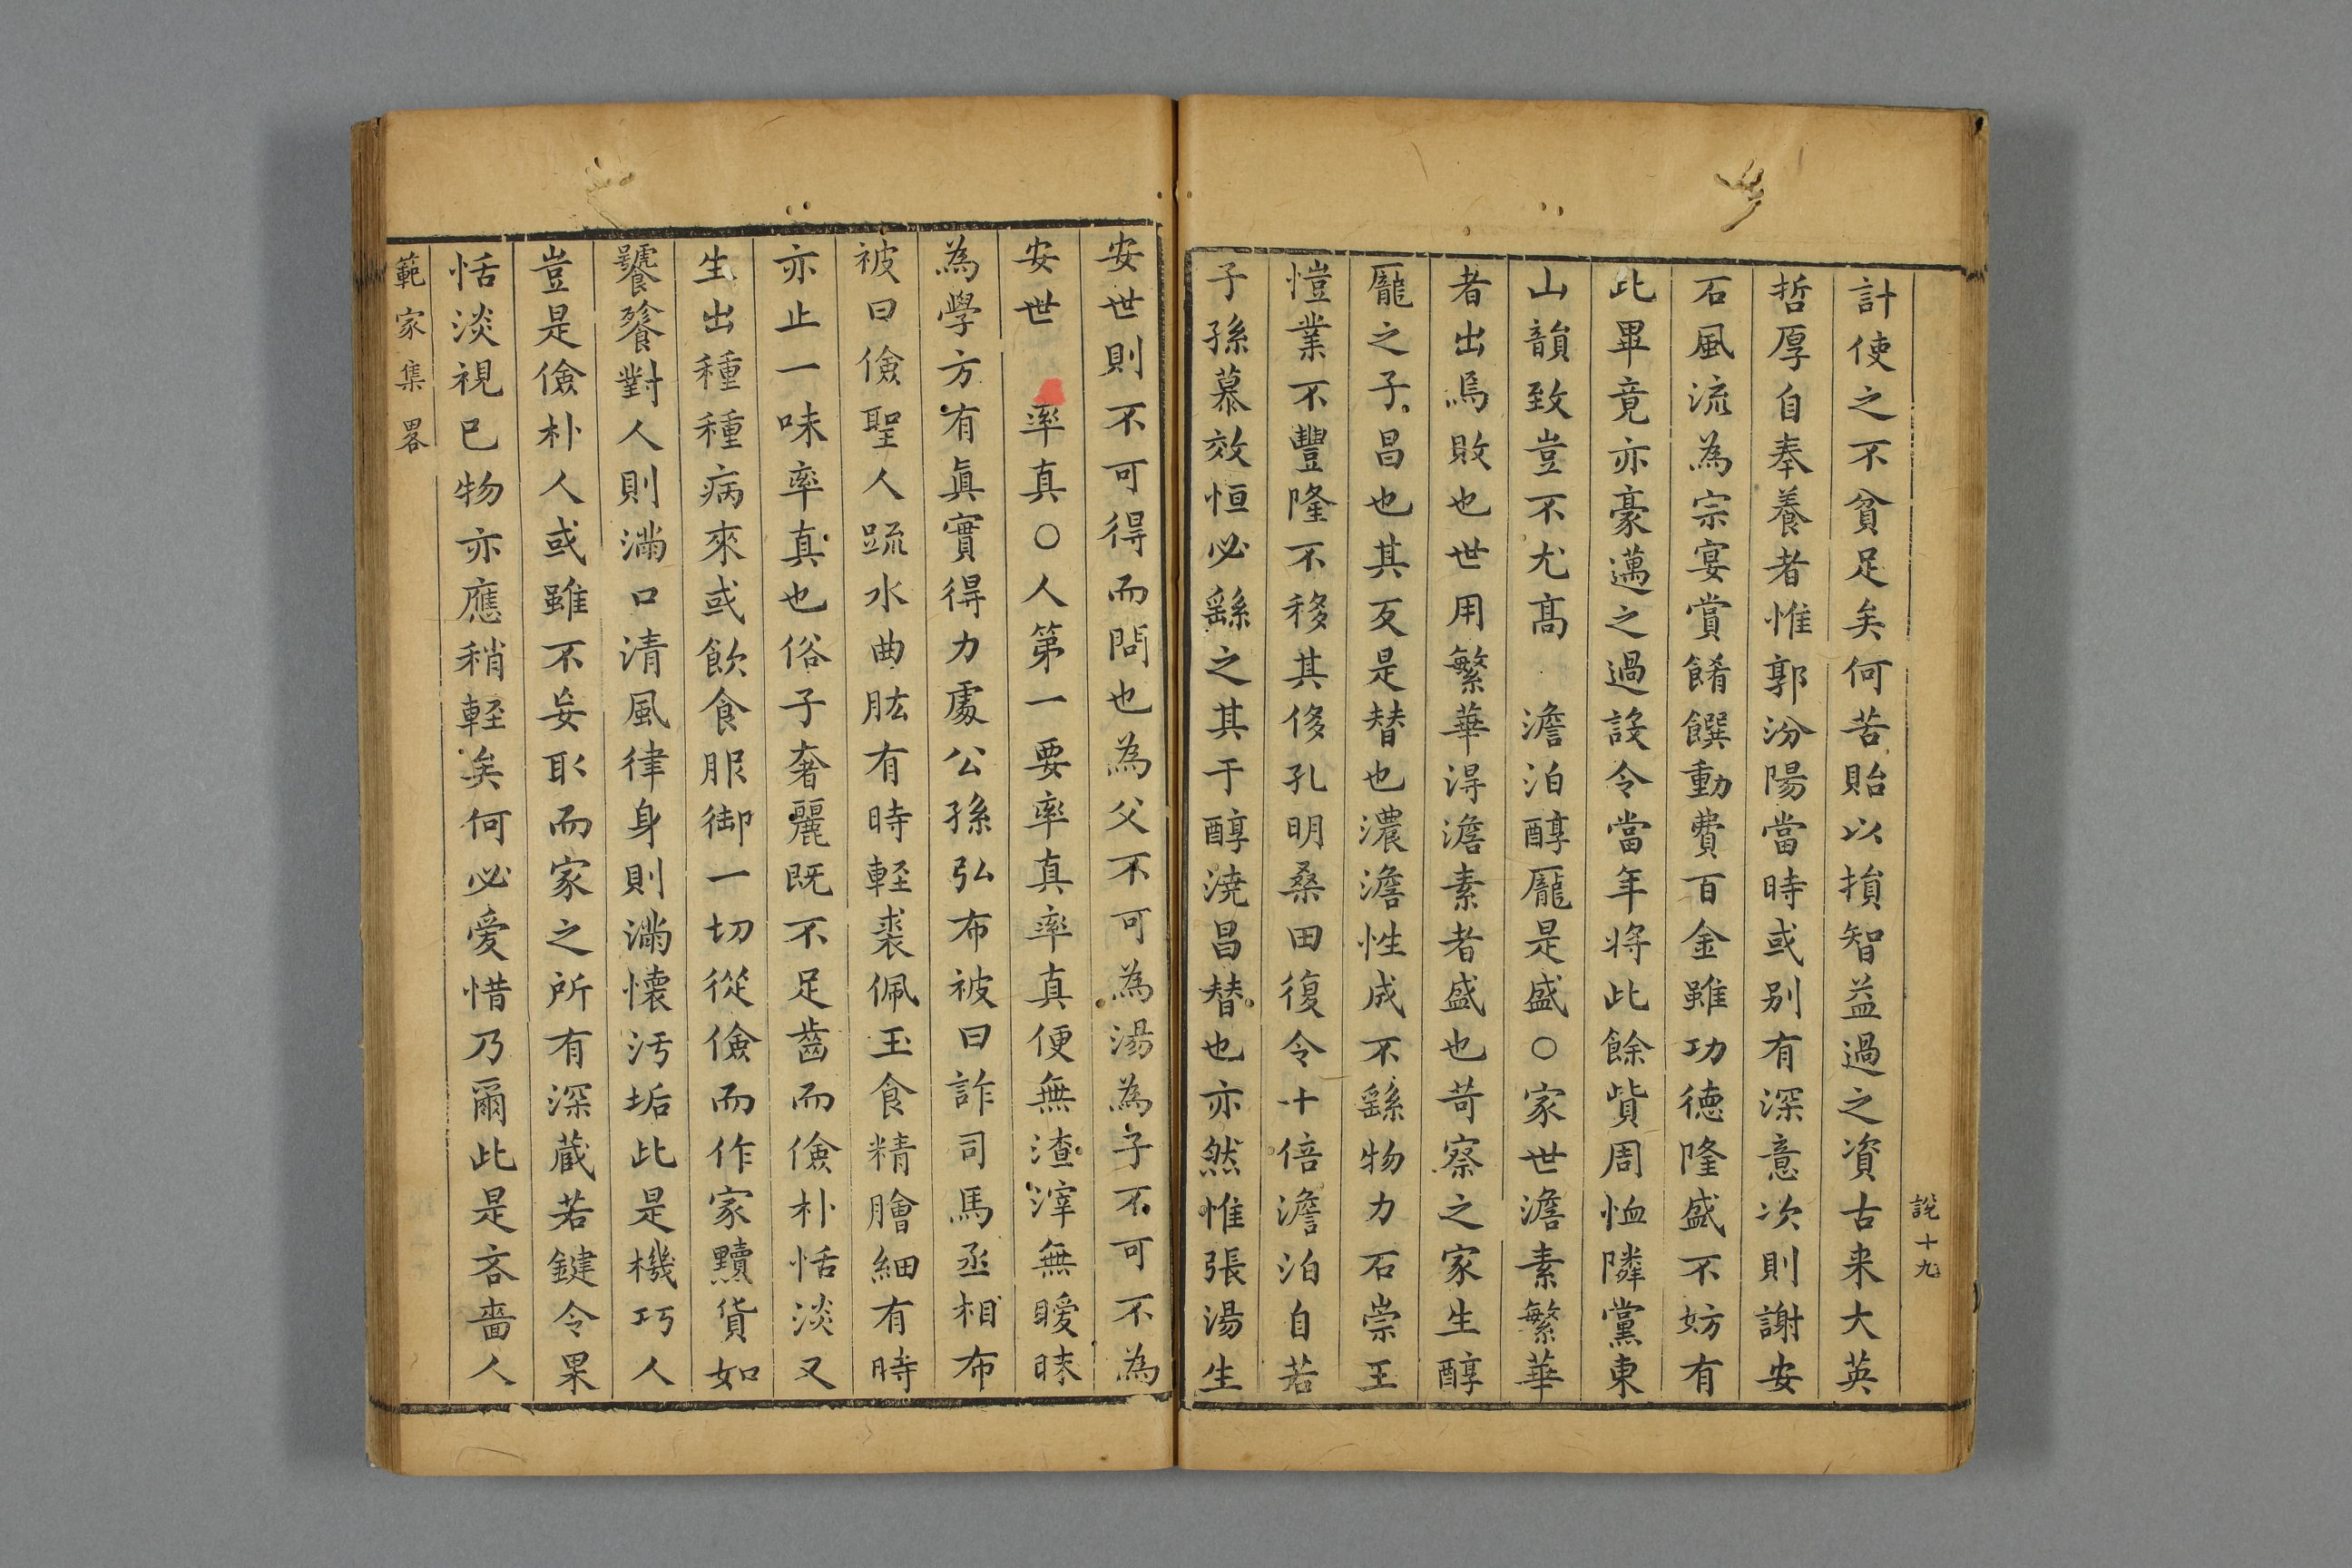 說十九
計使之不貧足矣何苦貽以損智益過之資古来大英
哲厚自奉養者惟郭汾陽當時或别有深意次則謝安
石風流為宗宴賞餚饌動費百金雖功德隆盛不妨有
此畢竟亦豪邁之過設令當年將此餘貲周恤隣黨東
山韻致豈不尤髙 澹泊醇厖是盛○家世澹素繁華
者出焉敗也世用繁華淂澹素者盛也苛察之家生醇
厖之子昌也其反是替也濃澹性成不繇物力石崇王
愷業不豐隆不移其侈孔明桑田復令十倍澹泊自若
子孫慕效恒必繇之其于醇澆昌替也亦然惟張湯生
安世則不可得而問也為父不可為湯為子不可不為
安世 率真○人第一要率真率真便無渣滓無曖昧
為學方有眞實得力處公孫弘布被曰詐司馬丞相布
被曰儉聖人䟽水曲肱有時輕裘佩玉食精膾細有時
亦止一味率真也俗子奢麗既不足齒而儉朴恬淡又
生出種種病來或飲食服御一切從儉而作家黷貨如
饕餮對人則滿口清風律身則滿懷汚垢此是機巧人
豈是儉朴人或雖不妄取而家之所有深蔵若鍵令果
恬淡視已物亦應稍輕矣何必愛惜乃爾此是吝嗇人
範家集畧